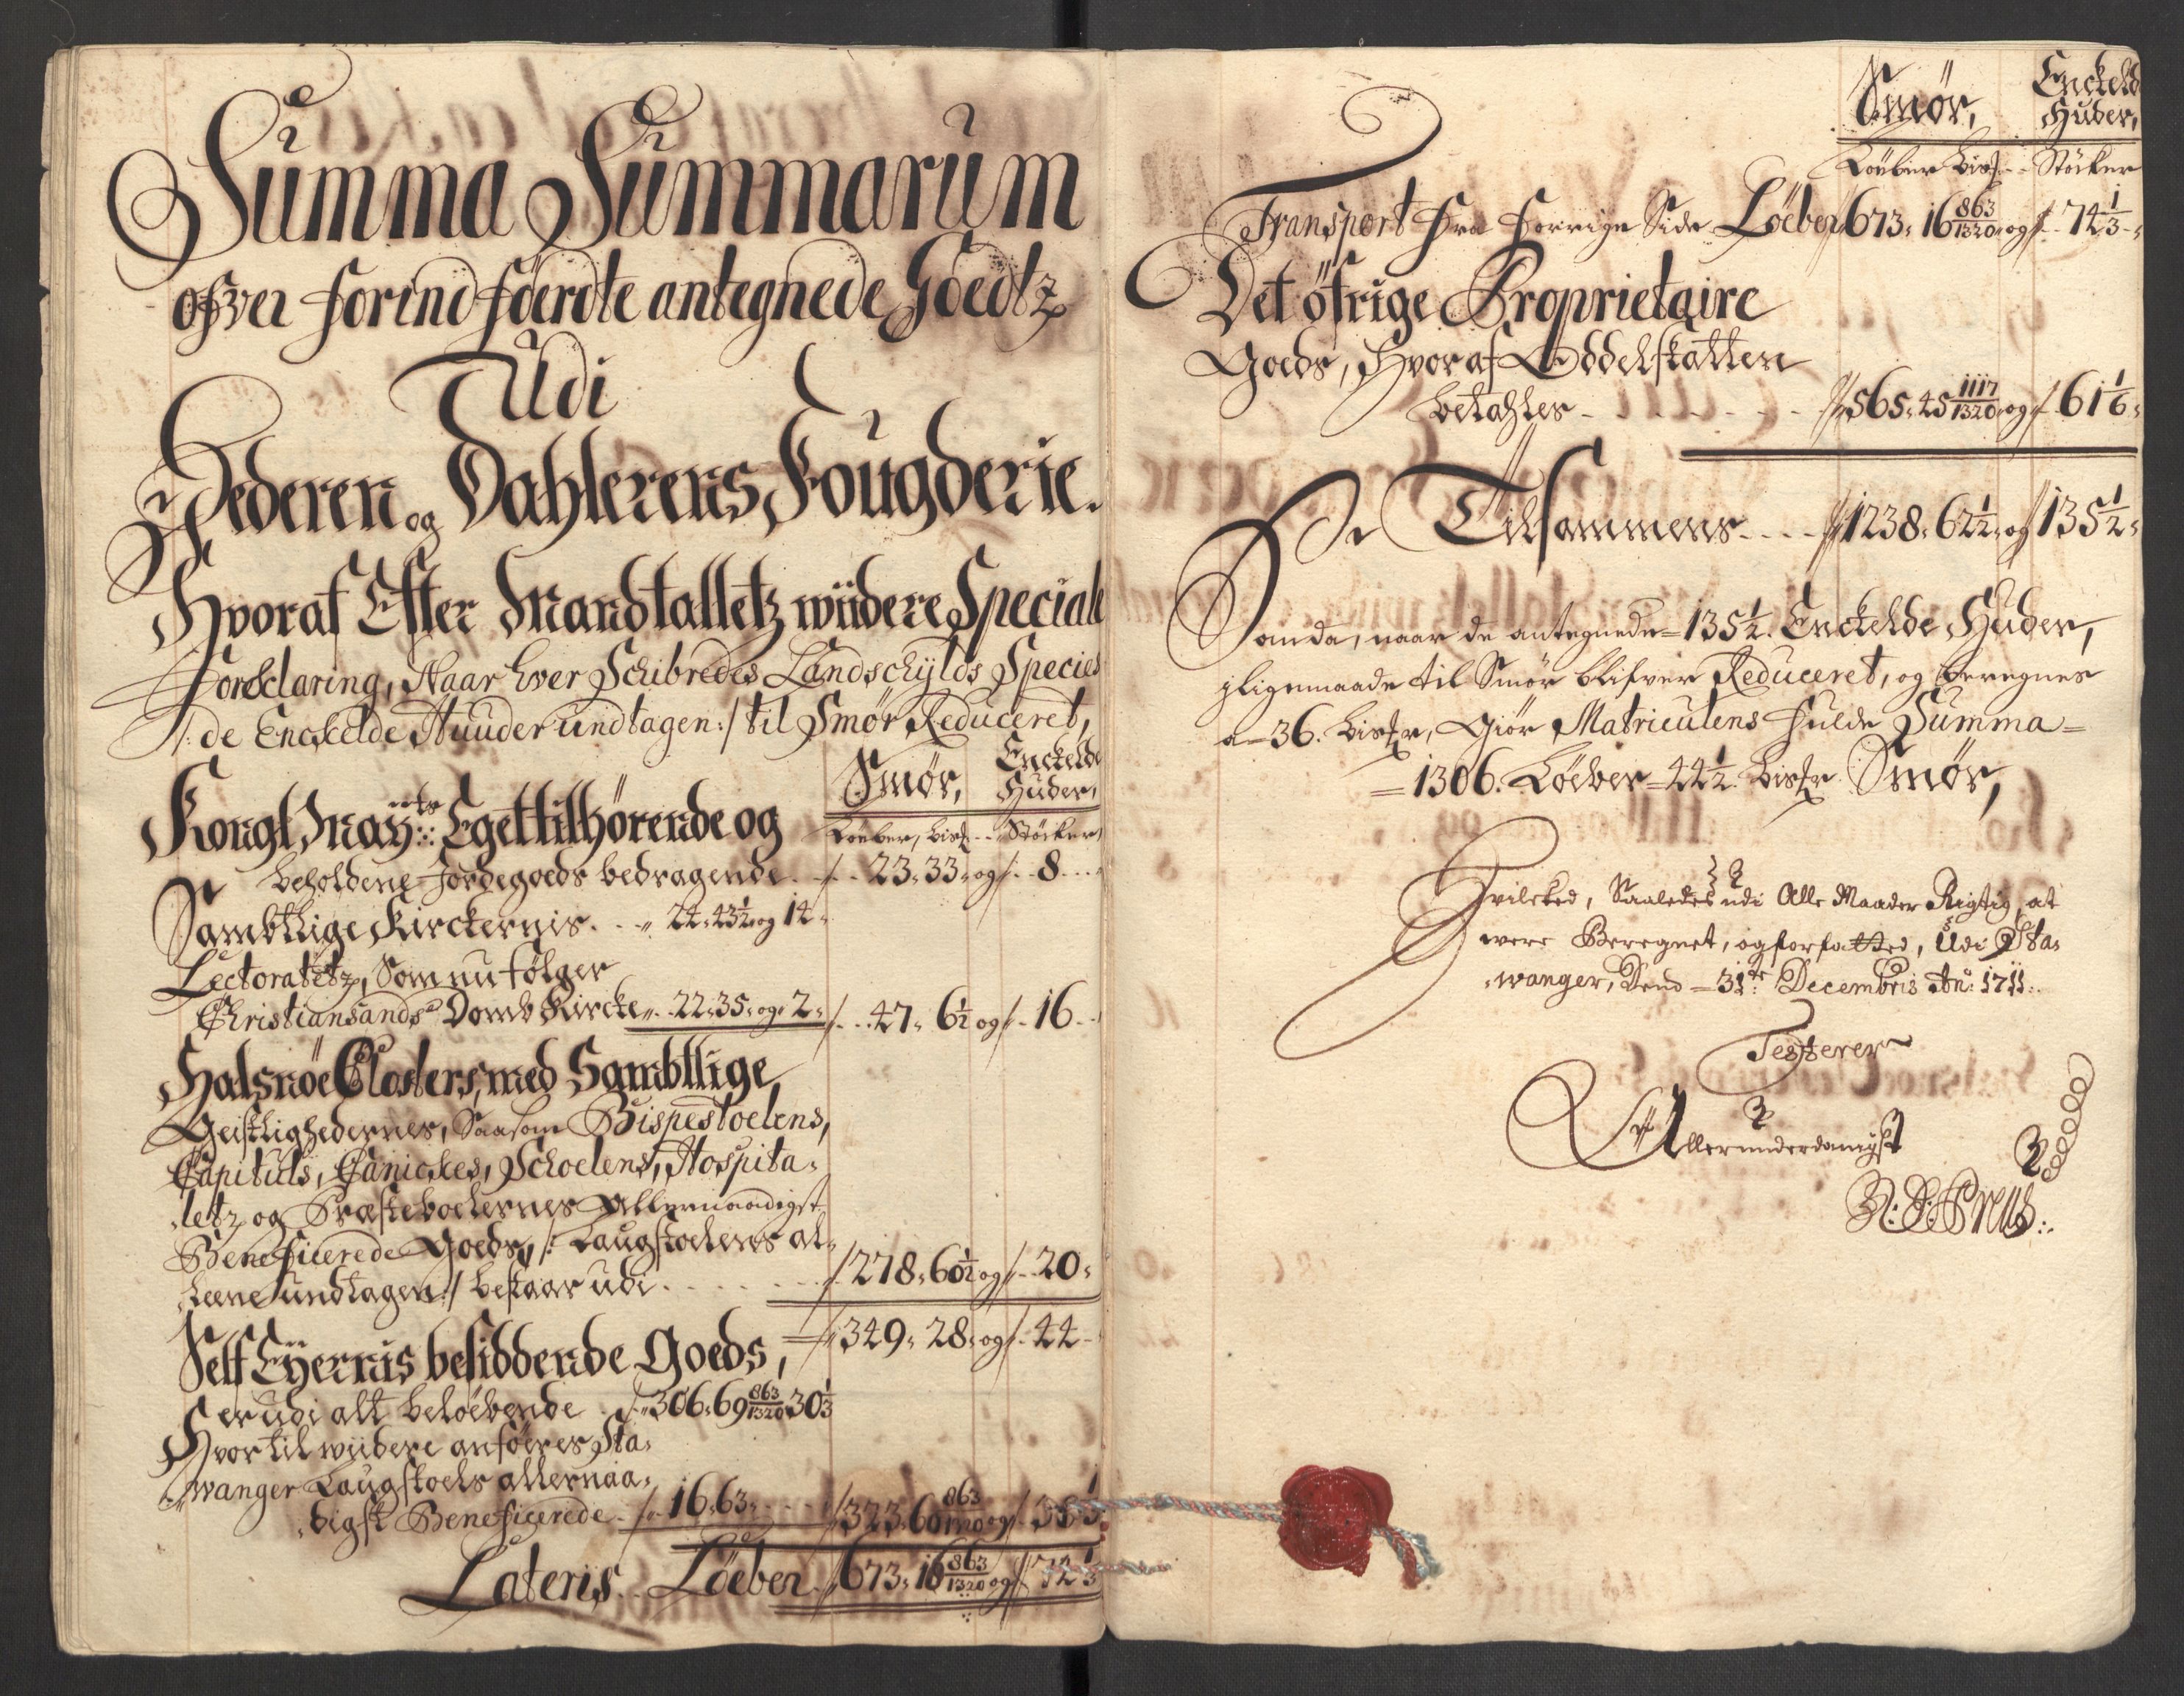 Summa Summarum
ofver forindføerdte antegnede Goedtz
Udi
Jederen og Dahlerens Fougderie.
Hvoraf Efter Mandtalletz wiidere Speciale
Forklaring, Naar hver Schibredes Landschylds Species
/: de Enckelde Huuder undtagen :/ til Smør Reduceret,
Smør, Enckelde Huder,
Løeber, bisp -- Støcker
Kongl May:ts Egettilhørende og
beholdene Jordegoeds bedragende - - 23. 33. og - 8 - -
Sambtlige Kirckernis. - - 24. 43½ og 14.
Lectoratetz, Som nu følger
Christiansands Domb Kircke - 22. 35. og 2. - - 47. 6½ og - 16 - -
Halsnöe Closters, med Sambtlige
Geistlighedernes, Saasom Bispestoelens,
Capituls, Canickes, Schoelens, Hospita-
letz og Præsteboelernes Allernaadigst
Beneficerede Goeds, /: Laugstoelens al-
leene undtagen :/ bestaar udi - - - 278. 60½ og - 20.
349. 28. og - 44 -
Self Eyernis besiddende Goeds,
er udi alt beløbende - 306. 69 863/1320 30⅓
Hvortil wiidere anføeres Sta-
wanger Laugstoels allernaa-
digst Beneficerede - 16. 63. - - 323. 60 863/1320 og - 30⅓
Lateris - - Löeber - 673. 16 863/1320 og - 74⅓
Smør, Enckelde Huder,
Løeber bisp - - Støcker
Transport Fra Forrige Side Löeber 673. 16 863/1320 og - 74⅓ -
Det öfrige Proprietaire
Goeds, Hvoraf Oddelskatten
betahles - - - - - - 565. 45 1117/1320 og - 61⅙.
Er Tilsammens - - - - 1238. 62½ og 135½.
Som da, naar de antegnede = 135½. Enckelde Huder,
ligemaade til Smør blifver Reduceret, og beregnes
a = 36. bispr, Giør Matriculens fulde Summa =
= 1306. Løeber = 44½. bispr. Smør,
Hvilcked, Saaledes udi Alle Maader Rigtig, at
were Beregnet, og forfatted, Udi Sta-
wanger, Dend = 31te: Decembris An: 1711.
Testerer
Allerunderdanigst